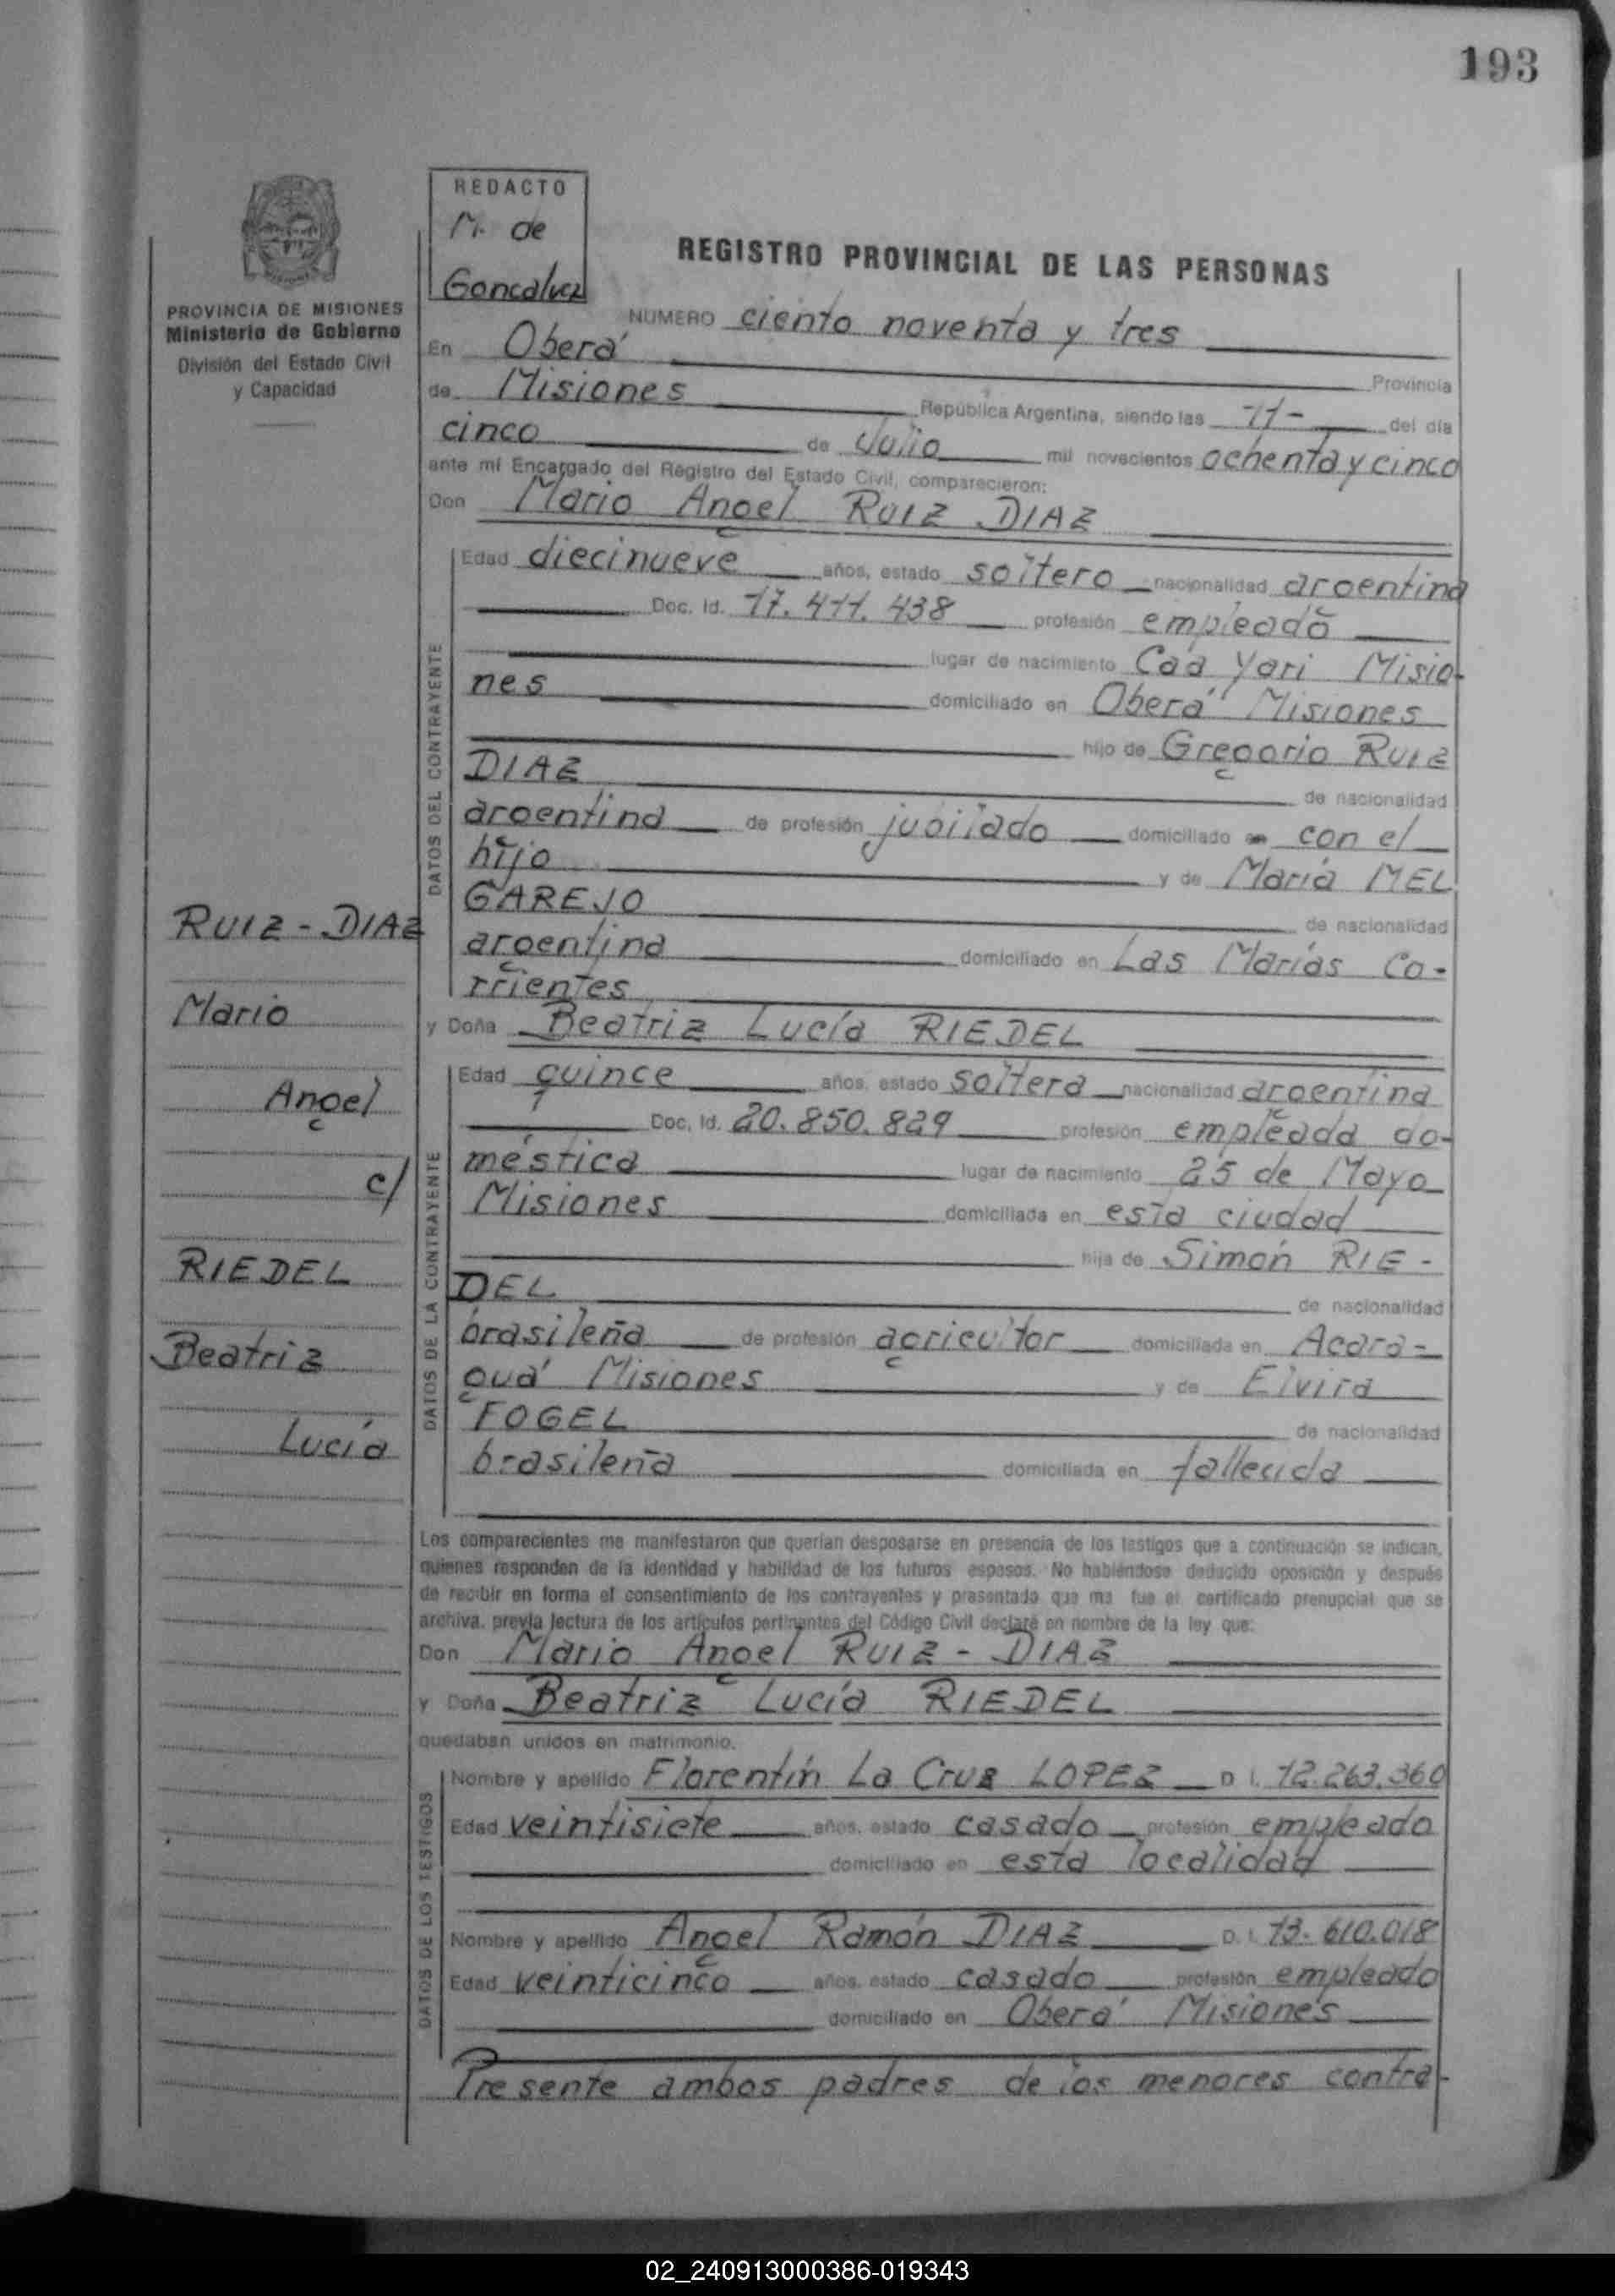 193
REDACTO
M. de
Goncalvez
REGISTRO PROVINCIAL DE LAS PERSONAS
PROVINCIA DE MISIONES
Ministerio de Gobierno
División del Estado Civil
y Capacidad
NUMERO ciento noventa y tres
En Oberá Provincia
de Misiones República Argentina, siendo las 11- del día
cinco de Julio mil novecientos ochenta y cinco
ante mí Encargado del Registro del Estado Civil, comparecieron:
Don Mario Angel RUIZ DIAZ
DATOS DEL CONTRAYENTE
Edad diecinueve años, estado soltero nacionalidad argentina
Doc. Id. 17.411.438 profesión empleado
lugar de nacimiento Caá Yari Misio-
nes domiciliado en Oberá Misiones
hijo de Gregorio RUIZ
DIAZ de nacionalidad
argentina de profesión jubilado domiciliado con el
hijo y de María MEL
GAREJO de nacionalidad
argentina domiciliado en Las Marías Co-
rrientes
y Doña Beatriz Lucía RIEDEL
DATOS DE LA CONTRAYENTE
Edad quince años, estado soltera nacionalidad argentina
Doc. Id. 20.850.829 profesión empleada do-
méstica lugar de nacimiento 25 de Mayo
Misiones domiciliada en esta ciudad
hija de Simón RIE-
DEL de nacionalidad
brasileña de profesión agricultor domiciliada en Acara-
guá Misiones y de Elvira
FOGEL de nacionalidad
brasileña domiciliada en fallecida
RUIZ-DIAZ
Mario
Angel
c/
RIEDEL
Beatriz
Lucía
Los comparecientes me manifestaron que querían desposarse en presencia de los testigos que a continuación se indican,
quienes responden de la identidad y habilidad de los futuros esposos. No habiéndose deducido oposición y después
de recibir en forma el consentimiento de los contrayentes y presentado que me fue el certificado prenupcial que se
archiva, previa lectura de los artículos pertinentes del Código Civil declaré en nombre de la ley que:
Don Mario Angel RUIZ-DIAZ
y Doña Beatriz Lucía RIEDEL
quedaban unidos en matrimonio.
DATOS DE LOS TESTIGOS
Nombre y apellido Florentín La Cruz LOPEZ D.I. 12.263.360
Edad veintisiete años, estado casado profesión empleado
domiciliado en esta localidad
Nombre y apellido Angel Ramón DIAZ D.I. 13.610.018
Edad veinticinco años, estado casado profesión empleado
domiciliado en Oberá Misiones
Presente ambos padres de los menores contra-
02_240913000386-019343